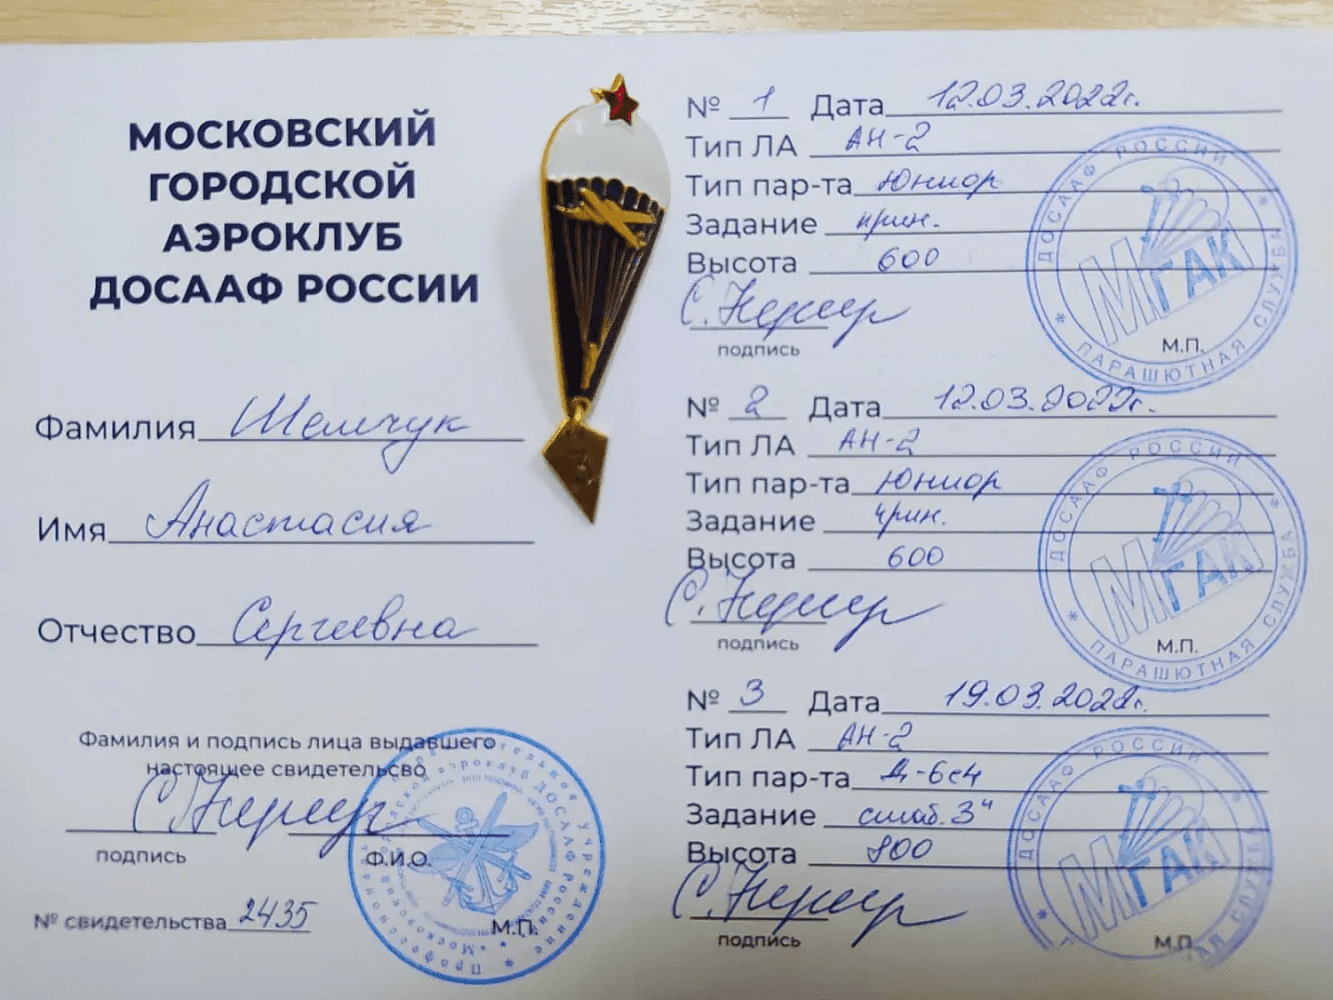 МОСКОВСКИЙ
ГОРОДСКОЙ
АЭРОКЛУБ
ДОСААФ РОССИИ
Фамилия Шемчук
Имя Анастасия
Отчество Сергеевна
Фамилия и подпись лица выдавшего
настоящее свидетельсво
подпись
Ф.И.О.
№ свидетельства 2435
М.П.
3
№ 1 Дата 12.03.2022г.
Тип ЛА АН-2
Тип пар-та Юниор
Задание
Высота 600
подпись
М.П.
ДОСААФ РОССИИ
МГАК
* ПАРАШЮТНАЯ СЛУЖБА *
№ 2 Дата 12.03.2022г.
Тип ЛА АН-2
Тип пар-та Юниор
Задание
Высота 600
подпись
М.П.
ДОСААФ РОССИИ
МГАК
* ПАРАШЮТНАЯ СЛУЖБА *
№ 3 Дата 19.03.2022г.
Тип ЛА АН-2
Тип пар-та Д-6с4
Задание стаб. 3"
Высота 800
подпись
М.П.
ДОСААФ РОССИИ
МГАК